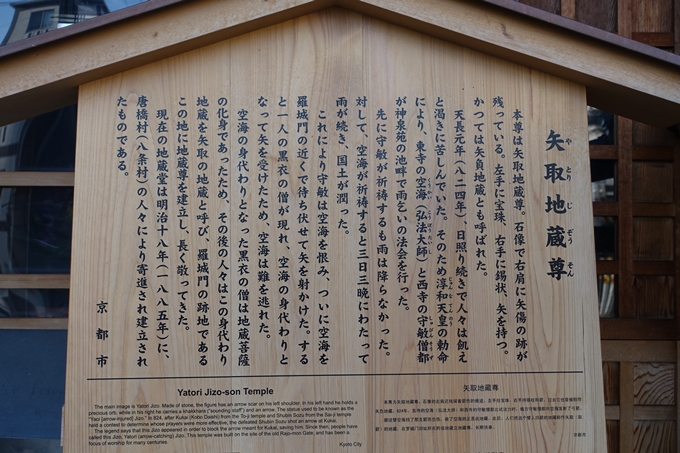 矢取地蔵尊
やとりじぞうそん
本尊は矢取地蔵尊。石像で右肩に矢傷の跡が
残っている。左手に宝珠、右手に錫状、矢を持つ。
かつては矢負地蔵とも呼ばれた。
天長元年(八二四年)、日照り続きで人々は飢え
と渇きに苦しんでいた。そのため淳和天皇の勅命
により、東寺の空海(弘法大師)と西寺の守敏僧都
が神泉苑の池畔で雨乞いの法会を行った。
先に守敏が祈祷するも雨は降らなかった。
対して、空海が祈祷すると三日三晩にわたって
雨が続き、国土が潤った。
これにより守敏は空海を恨み、ついに空海を
羅城門の近くで待ち伏せて矢を射かけた。する
と一人の黒衣の僧が現れ、空海の身代わりと
なって矢を受けたため、空海は難を逃れた。
空海の身代わりとなった黒衣の僧は地蔵菩薩
の化身であったため、その後の人々はこの身代わり
地蔵を矢取の地蔵と呼び、羅城門の跡地である
この地に地蔵尊を建立し、長く敬ってきた。
現在の地蔵堂は明治十八年(一八八五年)に、
唐橋村(八条村)の人々により寄進され建立され
たものである。
京都市
Yatori Jizo-son Temple
The main image is Yatori Jizo. Made of stone, the figure has an arrow scar on his left shoulder. In his left hand he holds a
precious orb, while in his right he carries a khakkhara ("sounding staff") and an arrow. The statue used to be known as the
"Yaoi [arrow-injured] Jizo." In 824, after Kukai (Kobo Daishi) from the To-ji temple and Shubin Sozu from the Sai-ji temple
held a contest to determine whose prayers were more effective, the defeated Shubin Sozu shot an arrow at Kukai.
The legend says that this Jizo appeared in order to block the arrow meant for Kukai, saving him. Since then, people have
called this Jizo, Yatori (arrow-catching) Jizo. This temple was built on the site of the old Rajo-mon Gate, and has been a
focus of worship for many centuries.
Kyoto City
矢取地蔵尊